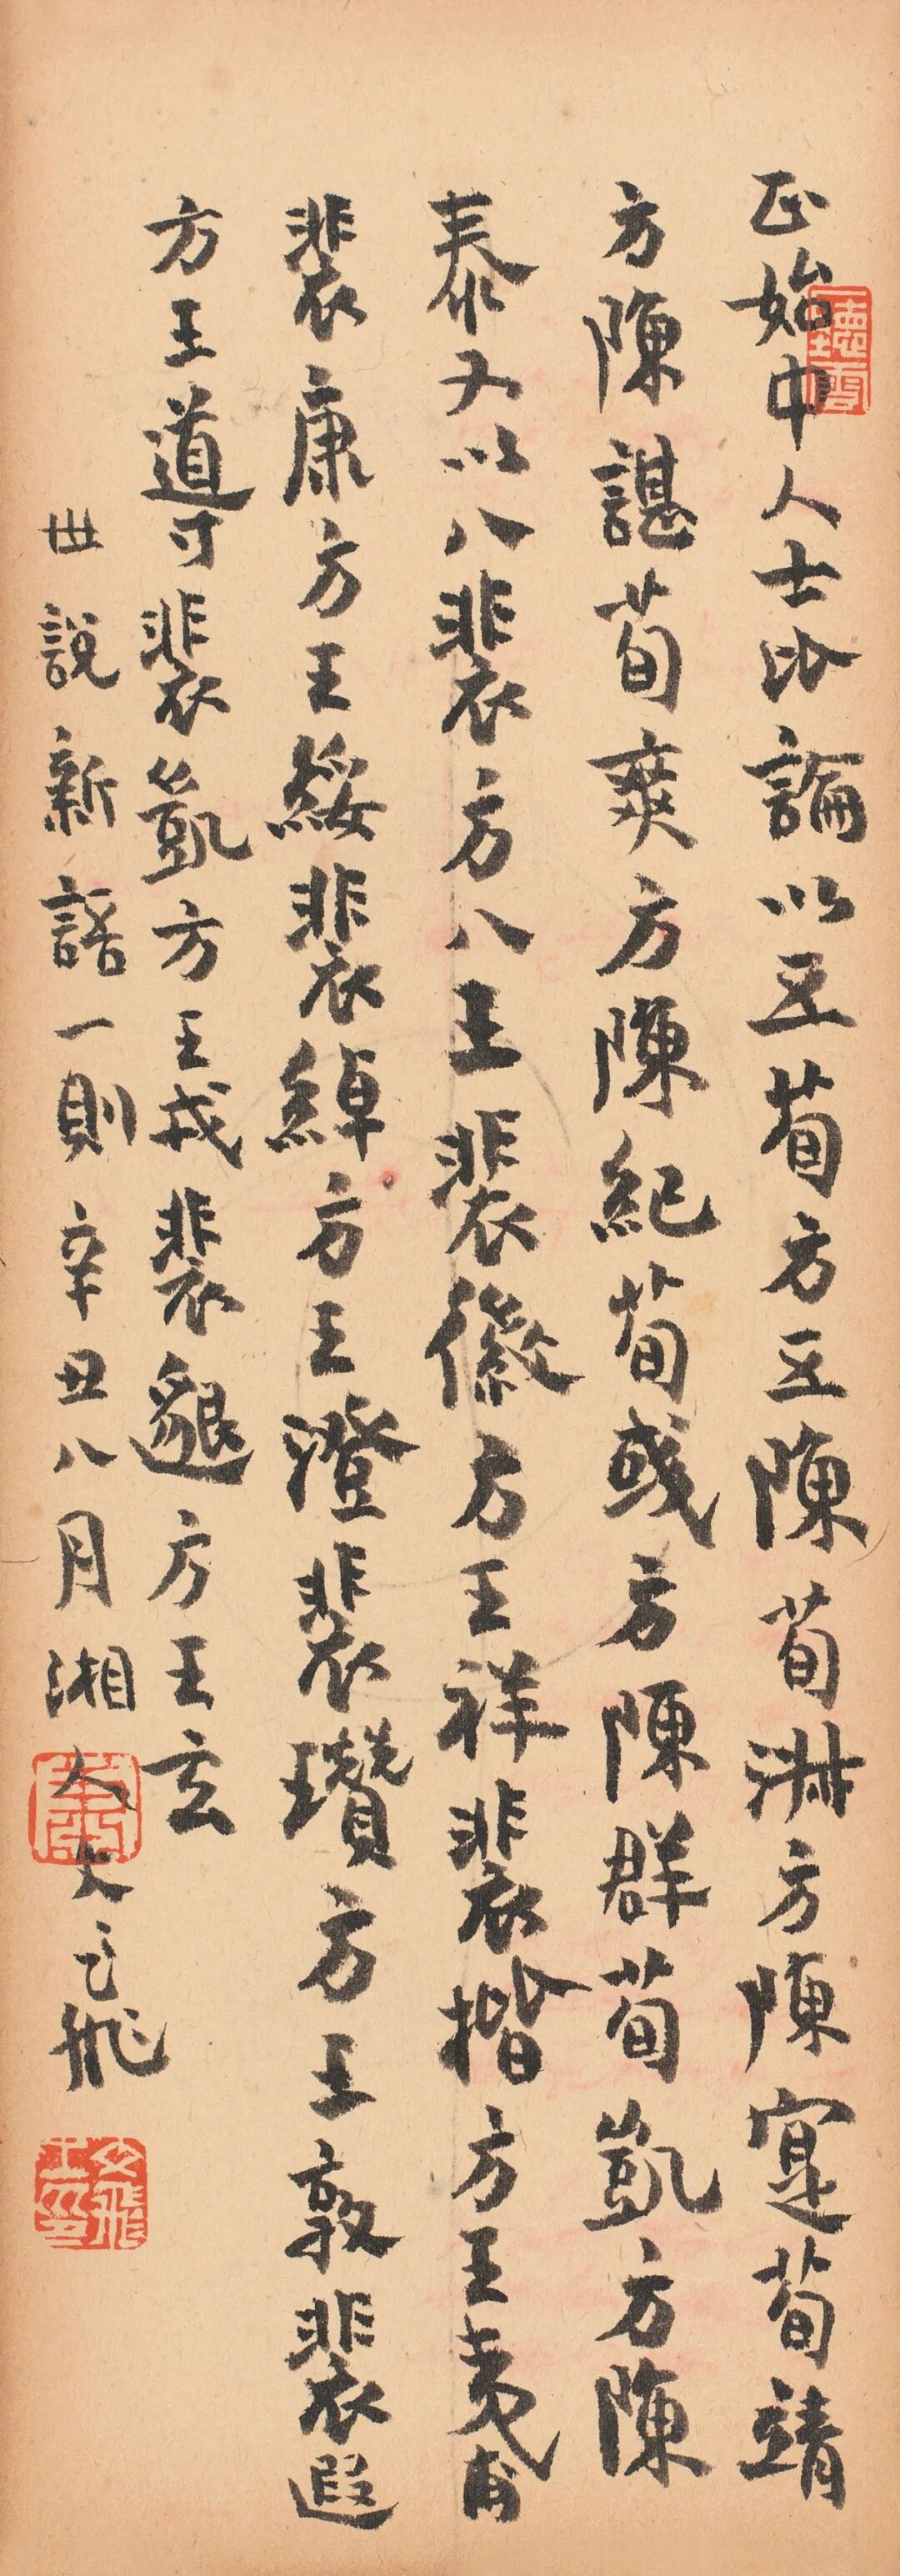 正始中人士比論以五荀方五陳荀淋方陳寔荀靖
方陳諶荀爽方陳紀荀彧方陳群荀凱方陳
泰又以八裴方八王裴徽方王祥裴楷方王夷甫
裴康方王綏裴綽方王澄裴瓚方王敦裴遐
方王導裴凱方王戎裴邈方王玄
世說新語一則辛丑八月湘人大飛